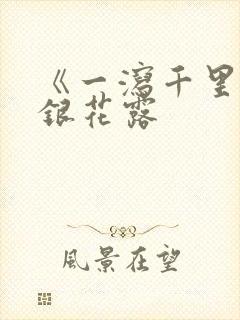 《一瀉千里
銀花露
風景在望